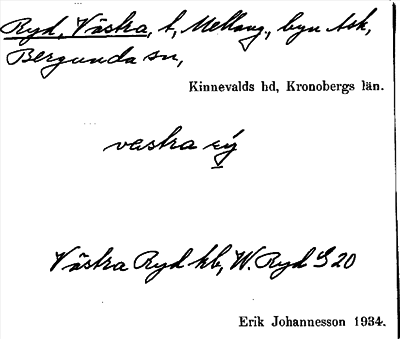 Ryd, Västra, t, Mellang., byn Ask,
Bergunda sn,
Kinnevalds hd, Kronobergs län.
vastra rý
Västra Ryd kb, W. Ryd G 20
Erik Johannesson 1934.